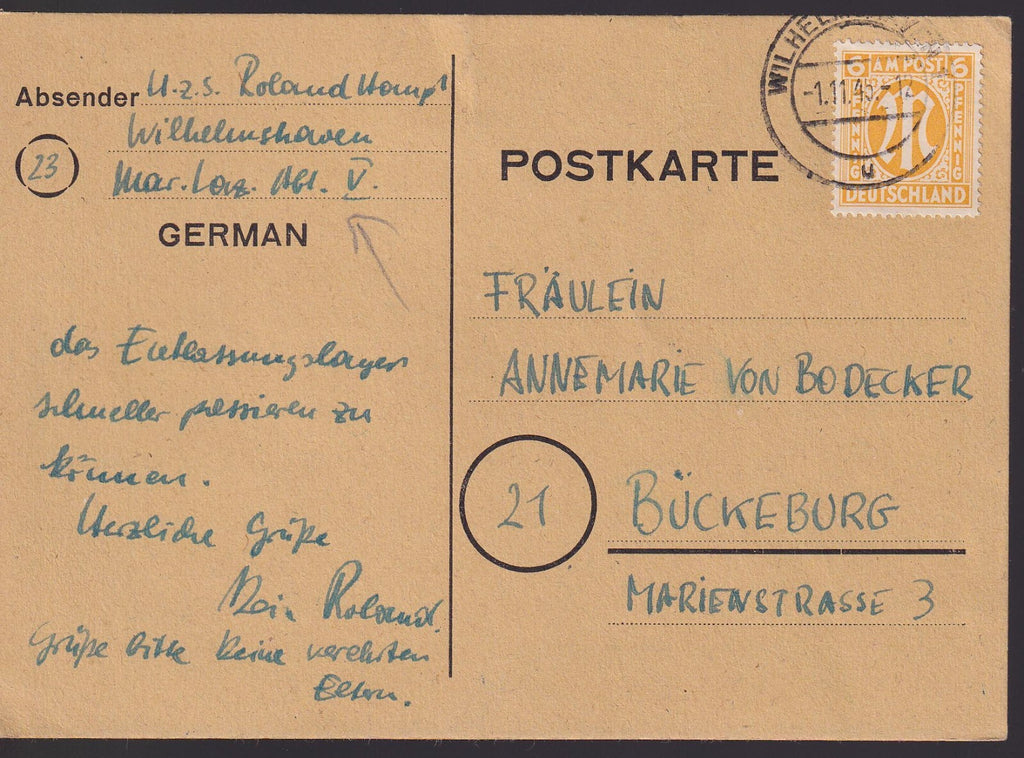 Absender U.z.S. Roland Haupt
Wilhelmshaven
23
Mar. Laz. Abt. V.
GERMAN
das Entlassungslager
schneller passieren zu
können.
Herzliche Grüße
Dein Roland.
Grüße bitte Deine verehrten
Eltern.
WILHELM
-1.11.45-12
u
6 AM POST 6
PFENNIG
PFENNIG
M
DEUTSCHLAND
POSTKARTE
FRÄULEIN
ANNEMARIE VON BODECKER
21
BÜCKEBURG
MARIENSTRASSE 3